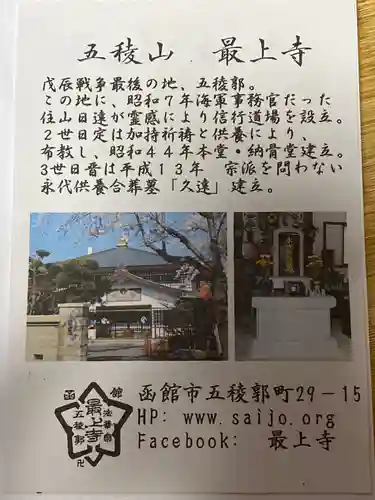 五稜山　最上寺
戊辰戦争最後の地、五稜郭。
この地に、昭和７年海軍事務官だった
住山日達が霊感により信行道場を設立。
２世日定は加持祈祷と供養により、
布教し、昭和４４年本堂・納骨堂建立。
３世日晋は平成１３年　宗派を問わない
永代供養合葬墓「久遠」建立。
函館市五稜郭町29－15
HP: www.saijo.org
Facebook:　最上寺
函館
五稜郭
最上寺
法華宗
卍